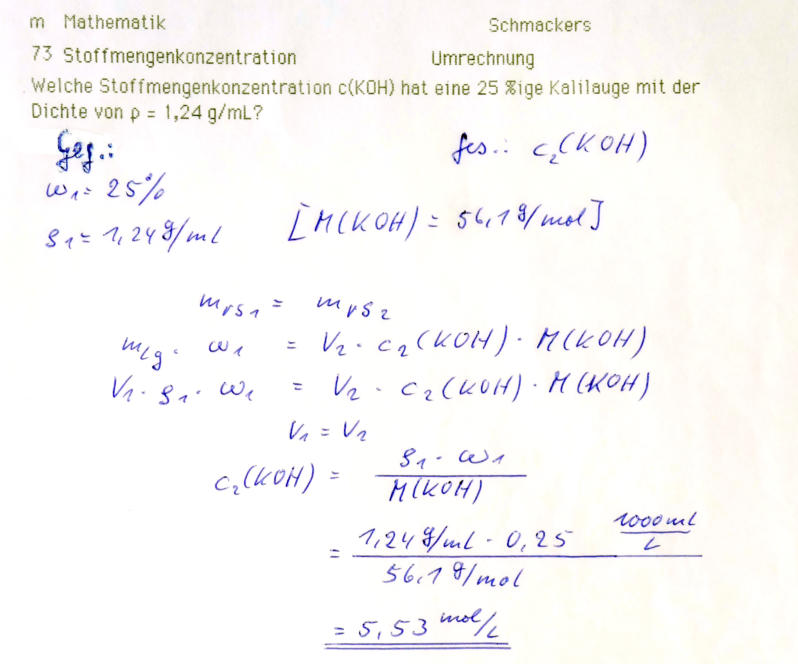 m Mathematik Schmackers
73 Stoffmengenkonzentration Umrechnung
Welche Stoffmengenkonzentration c(KOH) hat eine 25 %ige Kalilauge mit der
Dichte von ρ = 1,24 g/mL?
Geg.: Ges.: c₂(KOH)
ω₁ = 25%
ρ₁ = 1,24 g/mL [M(KOH) = 56,1 g/mol]
m_rS₁ = m_rS₂
m_Lg · ω₁ = V₂ · c₂(KOH) · M(KOH)
V₁ · ρ₁ · ω₁ = V₂ · c₂(KOH) · M(KOH)
V₁ = V₂
c₂(KOH) = ρ₁ · ω₁ / M(KOH)
= 1,24 g/mL · 0,25 1000 mL/L / 56,1 g/mol
= 5,53 mol/L